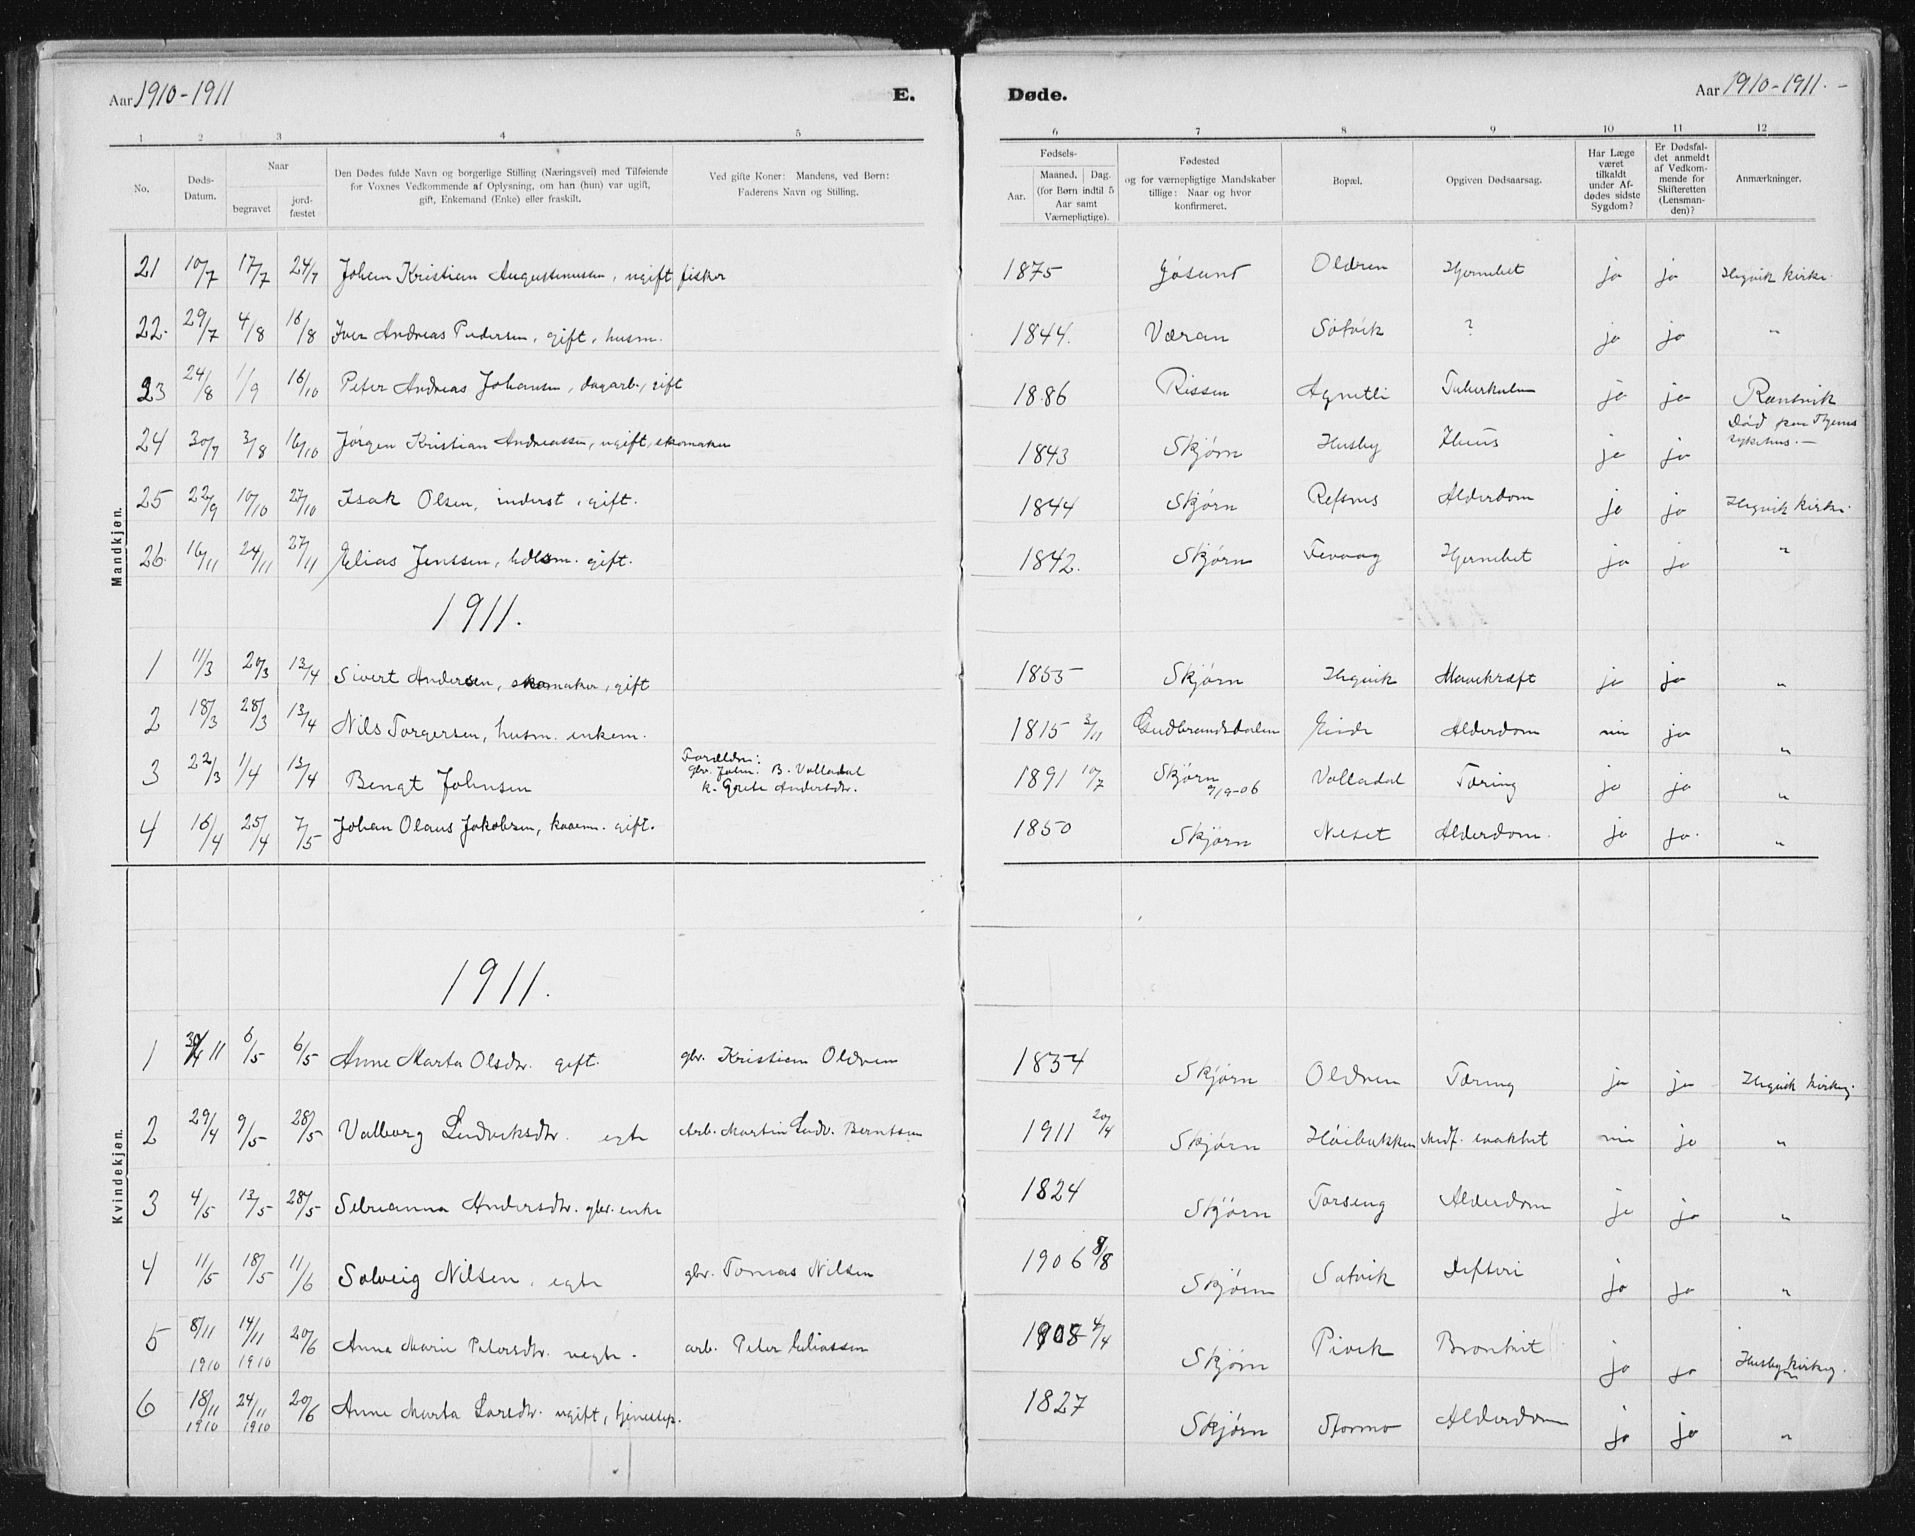 Aar 1910-1911
E.
Døde.
Aar 1910-1911.-
1 2 3 4 5 6 7 8 9 10 11 12
No.
Døds-
Datum.
Naar
begravet
jord-
fæstet
Den Dødes fulde Navn og borgerlige Stilling (Næringsvei) med Tilføiende
for Voxnes Vedkommende af Oplysning, om han (hun) var ugift,
gift, Enkemand (Enke) eller fraskilt.
Ved gifte Koner: Mandens, ved Børn:
Faderens Navn og Stilling.
Fødsels-
Aar.
Maaned. Dag.
(for Børn indtil 5
Aar samt
Værnepligtige).
Fødested
og for værnepligtige Mandskaber
tillige: Naar og hvor
konfirmeret.
Bopæl.
Opgiven Dødsaarsag.
Har Læge
været
tilkaldt
under Af-
dødes sidste
Sygdom?
Er Dødsfal-
det anmeldt
af Vedkom-
mende for
Skifteretten
(Lensman-
den)?
Anmærkninger.
Mandkjøn.
21 10/7 17/7 24/7 Johan Kristian Augustinussen, ugift fisker 1875 Jøsund Oldren Hjernebet ja ja Hegvik kirke.
22. 29/7 4/8 16/8 Iver Andreas Pedersen, gift, husm. 1844. Væran Sørvik ? ja ja "
23 24/8 1/9 16/10 Peter Andreas Johansen, dagarb., gift 1886 Rissen Agnetli Tuberkulose ja ja Rænsvik
24 30/7 3/8 16/10 Jørgen Kristian Andreassen, ugift, skomaker 1843 Skjørn Husby Ileus ja ja Død paa
sykehus.-
25 22/9 10/10 27/10 Isak Olsen, inderst, gift. 1844 Skjørn Refsnes Alderdom ja ja Hegvik kirke.
26. 16/11 24/11 27/11 Elias Jenssen, gift. 1842. Skjørn Tevaag Hjernebet ja ja "
1911.
1 11/3 20/3 13/4 Sivert Andersen, skomaker, gift 1855 Skjørn Hegvik Mavekræft ja ja "
2 18/3 28/3 13/4 Nils Torgersen, husm. enkem. 1815 3/11 Gudbrandsdalen Eide Alderdom nei ja "
3 22/3 1/4 13/4 Bengt Johnsen Forældre:
gbr. John. B. Valladal
k. Grete Andersdtr. 1891 10/7 Skjørn
9/9-06 Valladal Tæring ja ja "
4 16/4 25/4 7/5 Johan Olaus Jakobsen, kaarm. gift. 1850 Skjørn Neset Alderdom. ja ja. "
Kvindekjøn.
1911.
1 30/4 11 6/5 6/5 Anne Marta Olsdtr. gift. gbr. Kristian Oldren 1854 Skjørn Oldren Tæring ja ja Hegvik kirkeg.
2 29/4 9/5 28/5 Valborg Ludviksdtr. egte Arb. Martin Ludv. Berntsen 1911 20/4 Skjørn Høibakken Medf. svakhet nei ja "
3 4/5 13/5 28/5 Selrianna Andersdtr. gbr. enke 1824 Skjørn Torseng Alderdom ja ja "
4 11/5 18/5 11/6 Solveig Nilsen, egte gbr. Tomas Nilsen 1906 8/8 Skjørn Satvik Difteri ja ja "
5 8/11 1910 14/11 1910 20/6 Anna Marie Petersdtr. uegte. arb. Peter Eliassen 1908 4/4 Skjørn Pivik Bronkit ja ja Husby kirkeg.
6 18/11 1910 24/11 1910 20/6 Anne Marta Larsdtr. ugift, tjenestep. 1827 Skjørn Stormo Alderdom ja ja "